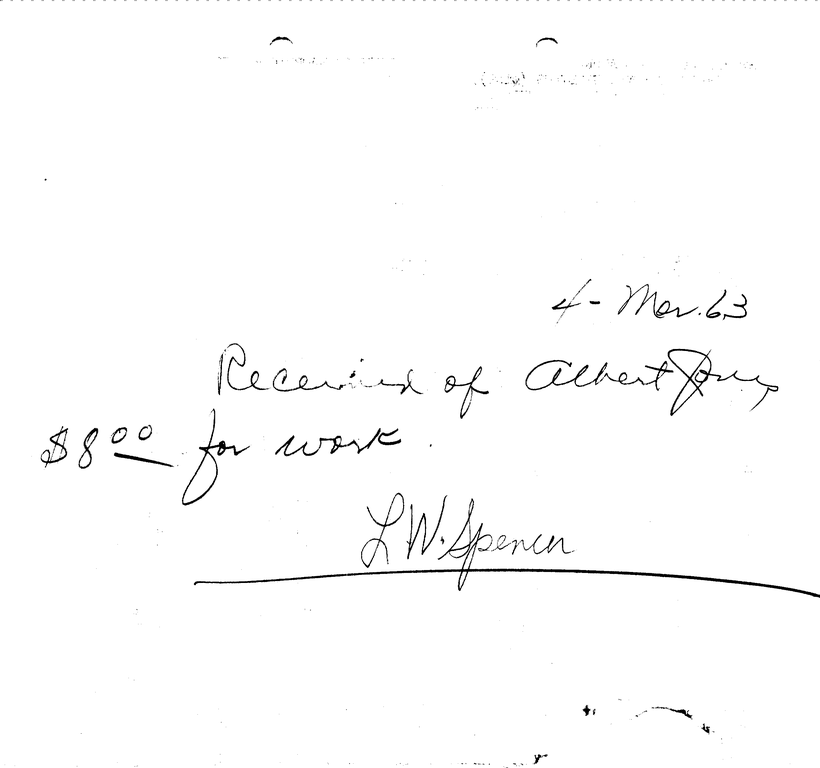 4 - Mar. 63
Received of Albert Jones
$8.00 for work.
L W. Spencer